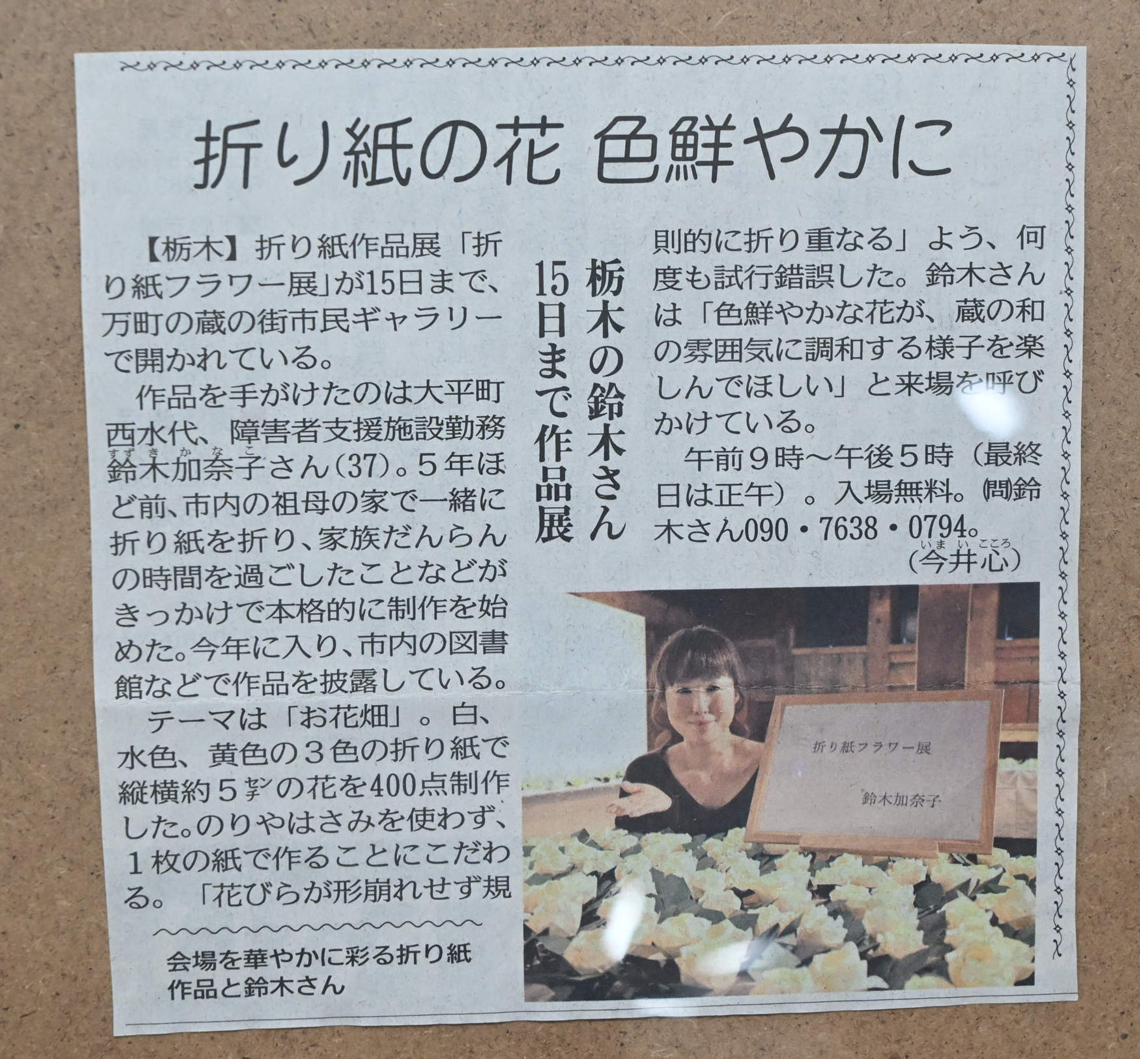 折り紙の花 色鮮やかに
栃木の鈴木さん
15日まで作品展
【栃木】折り紙作品展「折
り紙フラワー展」が15日まで、
万町の蔵の街市民ギャラリー
で開かれている。
作品を手がけたのは大平町
西水代、障害者支援施設勤務
すずきかなこ
鈴木加奈子さん(37)。５年ほ
ど前、市内の祖母の家で一緒に
折り紙を折り、家族だんらん
の時間を過ごしたことなどが
きっかけで本格的に制作を始
めた。今年に入り、市内の図書
館などで作品を披露している。
テーマは「お花畑」。白、
水色、黄色の３色の折り紙で
縦横約５㌢の花を400点制作
した。のりやはさみを使わず、
１枚の紙で作ることにこだわ
る。「花びらが形崩れせず規
則的に折り重なる」よう、何
度も試行錯誤した。鈴木さん
は「色鮮やかな花が、蔵の和
の雰囲気に調和する様子を楽
しんでほしい」と来場を呼び
かけている。
午前９時～午後５時（最終
日は正午）。入場無料。㉄鈴
木さん090・7638・0794。
いまいこころ
（今井心）
折り紙フラワー展
鈴木加奈子
会場を華やかに彩る折り紙
作品と鈴木さん